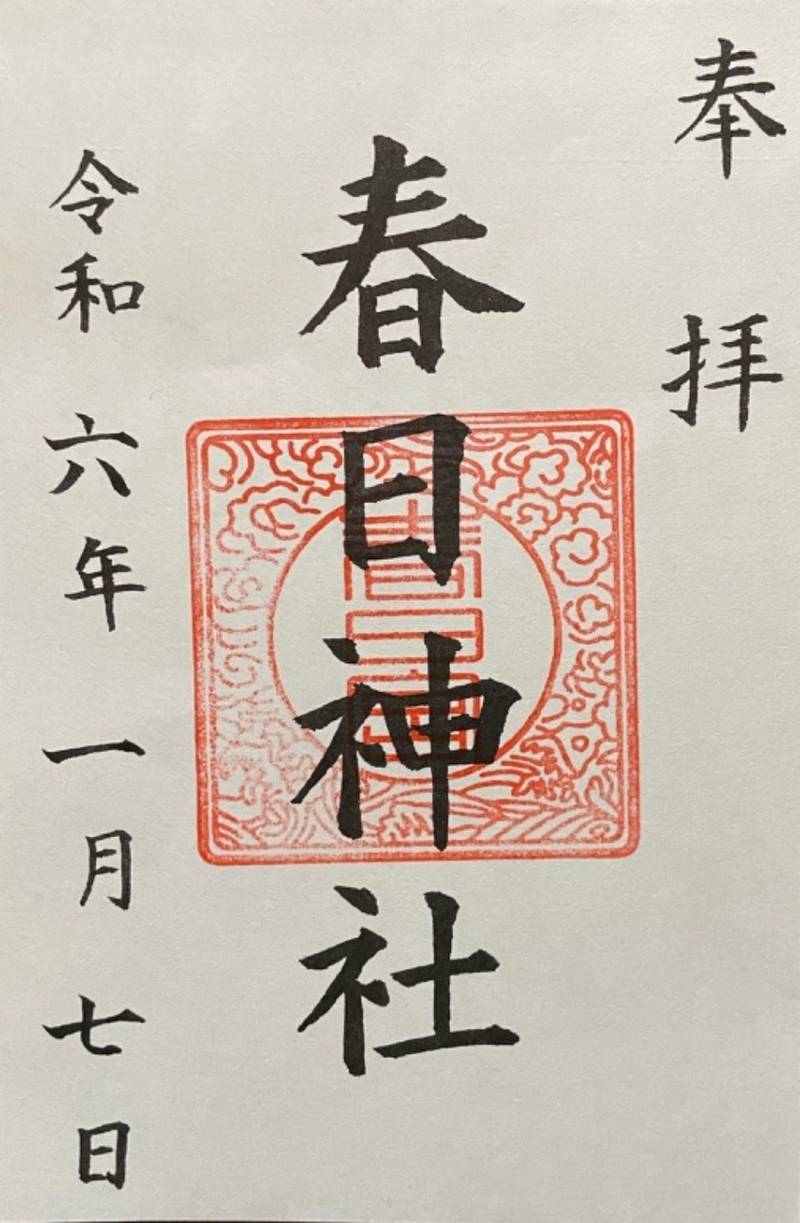 奉拝
春日神社
令和六年一月七日